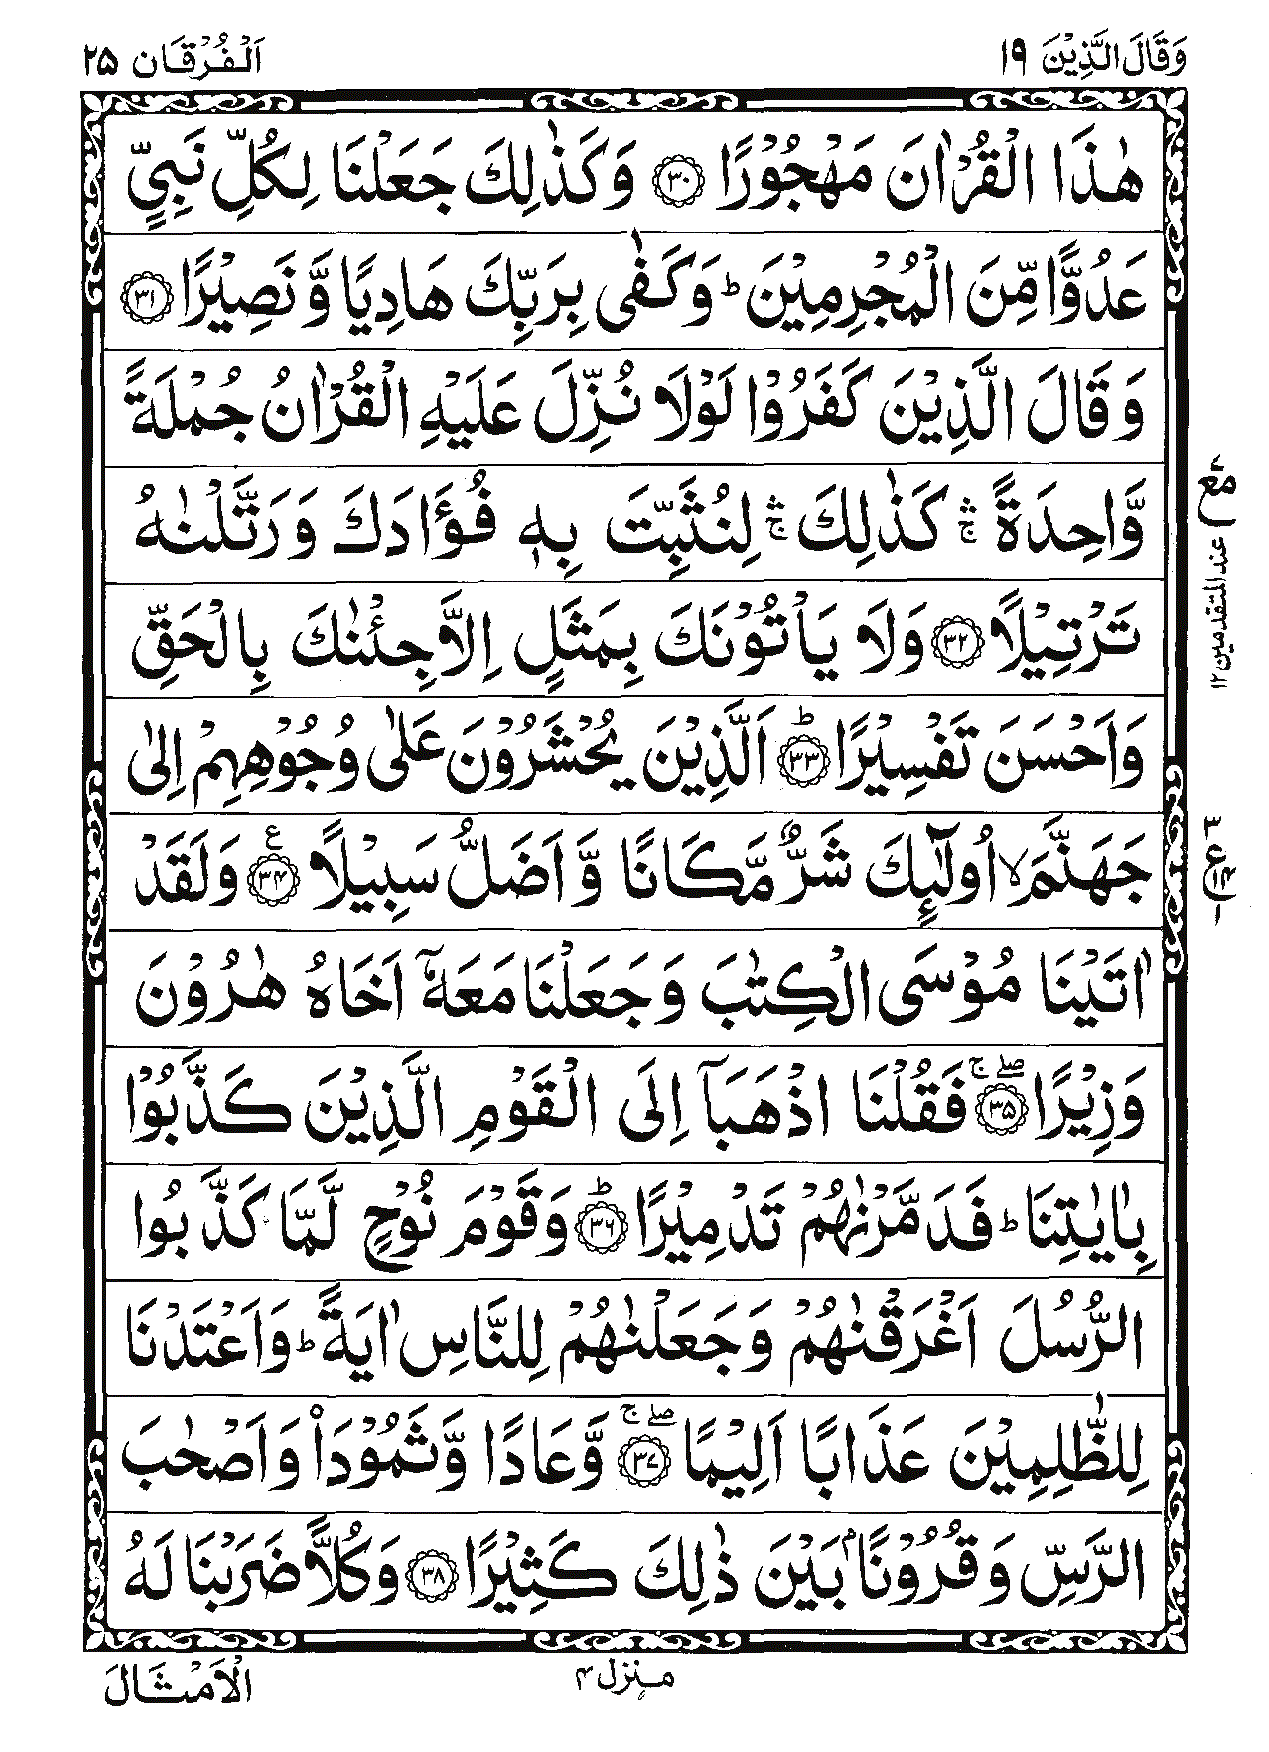 وَقَالَ الَّذِيْنَ ١٩
اَلْفُرْقَان ٢٥
هٰذَا الْقُرْاٰنَ مَهْجُوْرًا ﴿٣٠﴾ وَكَذٰلِكَ جَعَلْنَا لِكُلِّ نَبِيٍّ
عَدُوًّا مِّنَ الْمُجْرِمِيْنَ ؕ وَكَفٰى بِرَبِّكَ هَادِيًا وَّ نَصِيْرًا ﴿٣١﴾
وَ قَالَ الَّذِيْنَ كَفَرُوْا لَوْلَا نُزِّلَ عَلَيْهِ الْقُرْاٰنُ جُمْلَةً
وَّاحِدَةً ۛۚ كَذٰلِكَ ۛۚ لِنُثَبِّتَ بِهٖ فُؤَادَكَ وَ رَتَّلْنٰهُ
تَرْتِيْلًا ﴿٣٢﴾ وَلَا يَاْتُوْنَكَ بِمَثَلٍ اِلَّا جِئْنٰكَ بِالْحَقِّ
وَاَحْسَنَ تَفْسِيْرًا ﴿٣٣﴾ؕ اَلَّذِيْنَ يُحْشَرُوْنَ عَلٰى وُجُوْهِهِمْ اِلٰى
جَهَنَّمَ ۙ اُولٰٓئِكَ شَرٌّ مَّكَانًا وَّ اَضَلُّ سَبِيْلًا ﴿٣٤﴾ ع وَلَقَدْ
اٰتَيْنَا مُوْسَى الْكِتٰبَ وَ جَعَلْنَا مَعَهٗٓ اَخَاهُ هٰرُوْنَ
وَزِيْرًا ﴿٣٥﴾ ۖۚ فَقُلْنَا اذْهَبَآ اِلَى الْقَوْمِ الَّذِيْنَ كَذَّبُوْا
بِاٰيٰتِنَا ؕ فَدَمَّرْنٰهُمْ تَدْمِيْرًا ﴿٣٦﴾ؕ وَقَوْمَ نُوْحٍ لَّمَّا كَذَّبُوا
الرُّسُلَ اَغْرَقْنٰهُمْ وَجَعَلْنٰهُمْ لِلنَّاسِ اٰيَةً ؕ وَاَعْتَدْنَا
لِلظّٰلِمِيْنَ عَذَابًا اَلِيْمًا ﴿٣٧﴾ ۖۚ وَّعَادًا وَّثَمُوْدَا۟ وَاَصْحٰبَ
الرَّسِّ وَ قُرُوْنًۢا بَيْنَ ذٰلِكَ كَثِيْرًا ﴿٣٨﴾ وَكُلًّا ضَرَبْنَا لَهُ
مع عند المتقدمين ١٢
منزل ٤
الْاَمْثَالَ